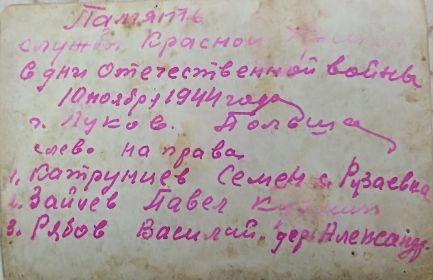 Память
службы Красной
в дни Отечественной войны
10 ноября 1944 года
г. Луков. Польша
слево на права
1. Катрунцев Семен с. Рузаевка
2. Зайцев Павел
3. Рябов Василий. дер. Александр.